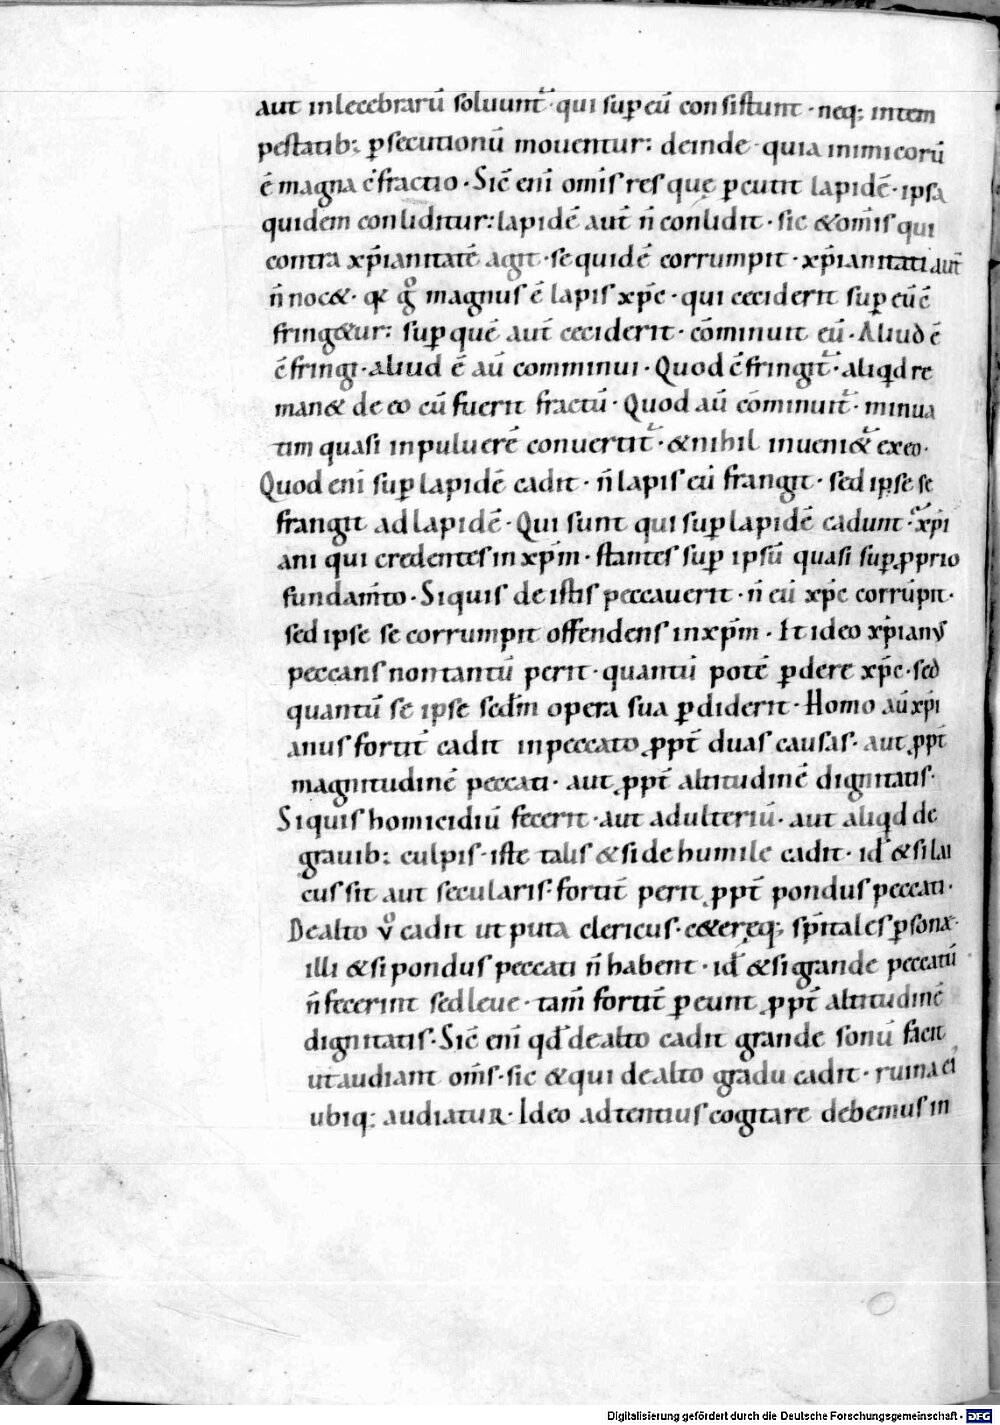 aut inlecebrarū soluunt᷑· qui suꝑ eū consistunt · neq; intem
pestatib; ꝑsecutionū mouentur: deinde · quia inimicorū
ē magna c̄fractio · Sic̄ eni omīs res quę ꝑcutit lapidē · ipsa
quidem conliditur: lapidē aut̄ n̄ conlidit · sic &omīs qui
contra xp̄ianitatē agit · se quidē corrumpit · xp̄ianitati aut̄
n̄ noc&· magnus ē lapis xp̄c · qui ceciderit suꝑ eū c̄
fring&ur: suꝑ quē aut̄ ceciderit · cōminuit eū · Aliud ē
c̄fringi · aliud ē aū comminui · Quod c̄fringit᷑ · aliqd re
man& de eo cū fuerit fractū · Quod aū cōminuit᷑ · minua
tim quasi in puluerē conuertit᷑ · &nihil inueni&᷑ ex eo ·
Quod eni suꝑ lapidē cadit · n̄ lapis eū frangit · sed ipse se
frangit ad lapidē · Qui sunt qui suꝑ lapidē cadunt · xp̄i
ani qui credentes in xp̄m · stantes suꝑ ipsū quasi suꝑ ꝓprio
fundam̄to · Siquis de istis peccauerit · n̄ eū xp̄c corrūpit ·
sed ipse se corrumpit offendens in xp̄m · Et ideo xp̄ianus
peccans non tantū perit · quantū potē ꝑdere xp̄c · sed
quantū se ipse sedm̄ opera sua ꝑdiderit · Homo aū xp̄i
anus fortit̄ cadit in peccato ꝓpt̄ duas causas · aut ꝓpt̄
magnitudinē peccati · aut ꝓpt̄ altitudinē dignitatis ·
Siquis homicidiū fecerit · aut adulteriū · aut aliqd de
grauib; culpis · iste talis &si de humile cadit · id̄ &si lai
cus sit aut secularis · fortit̄ perit ꝓpt̄ pondus peccati ·
De alto v̊ cadit ut puta clericus · c&ereq; sp̄itales ꝑsonæ ·
illi &si pondus peccati n̄ habent · id̄ &si grande peccatū
n̄ fecerint sed leue · tam̄ fortit̄ ꝑeunt ꝓpt̄ altitudinē
dignitatis · Sic̄ eni qd̄ de alto cadit grande sonū facit
ut audiant om̄s · sic &qui de alto gradu cadit · ruina ei
ubiq; audiatur · Ideo adtentius cogitare debemus in
Digitalisierung gefördert durch die Deutsche Forschungsgemeinschaft - DFG